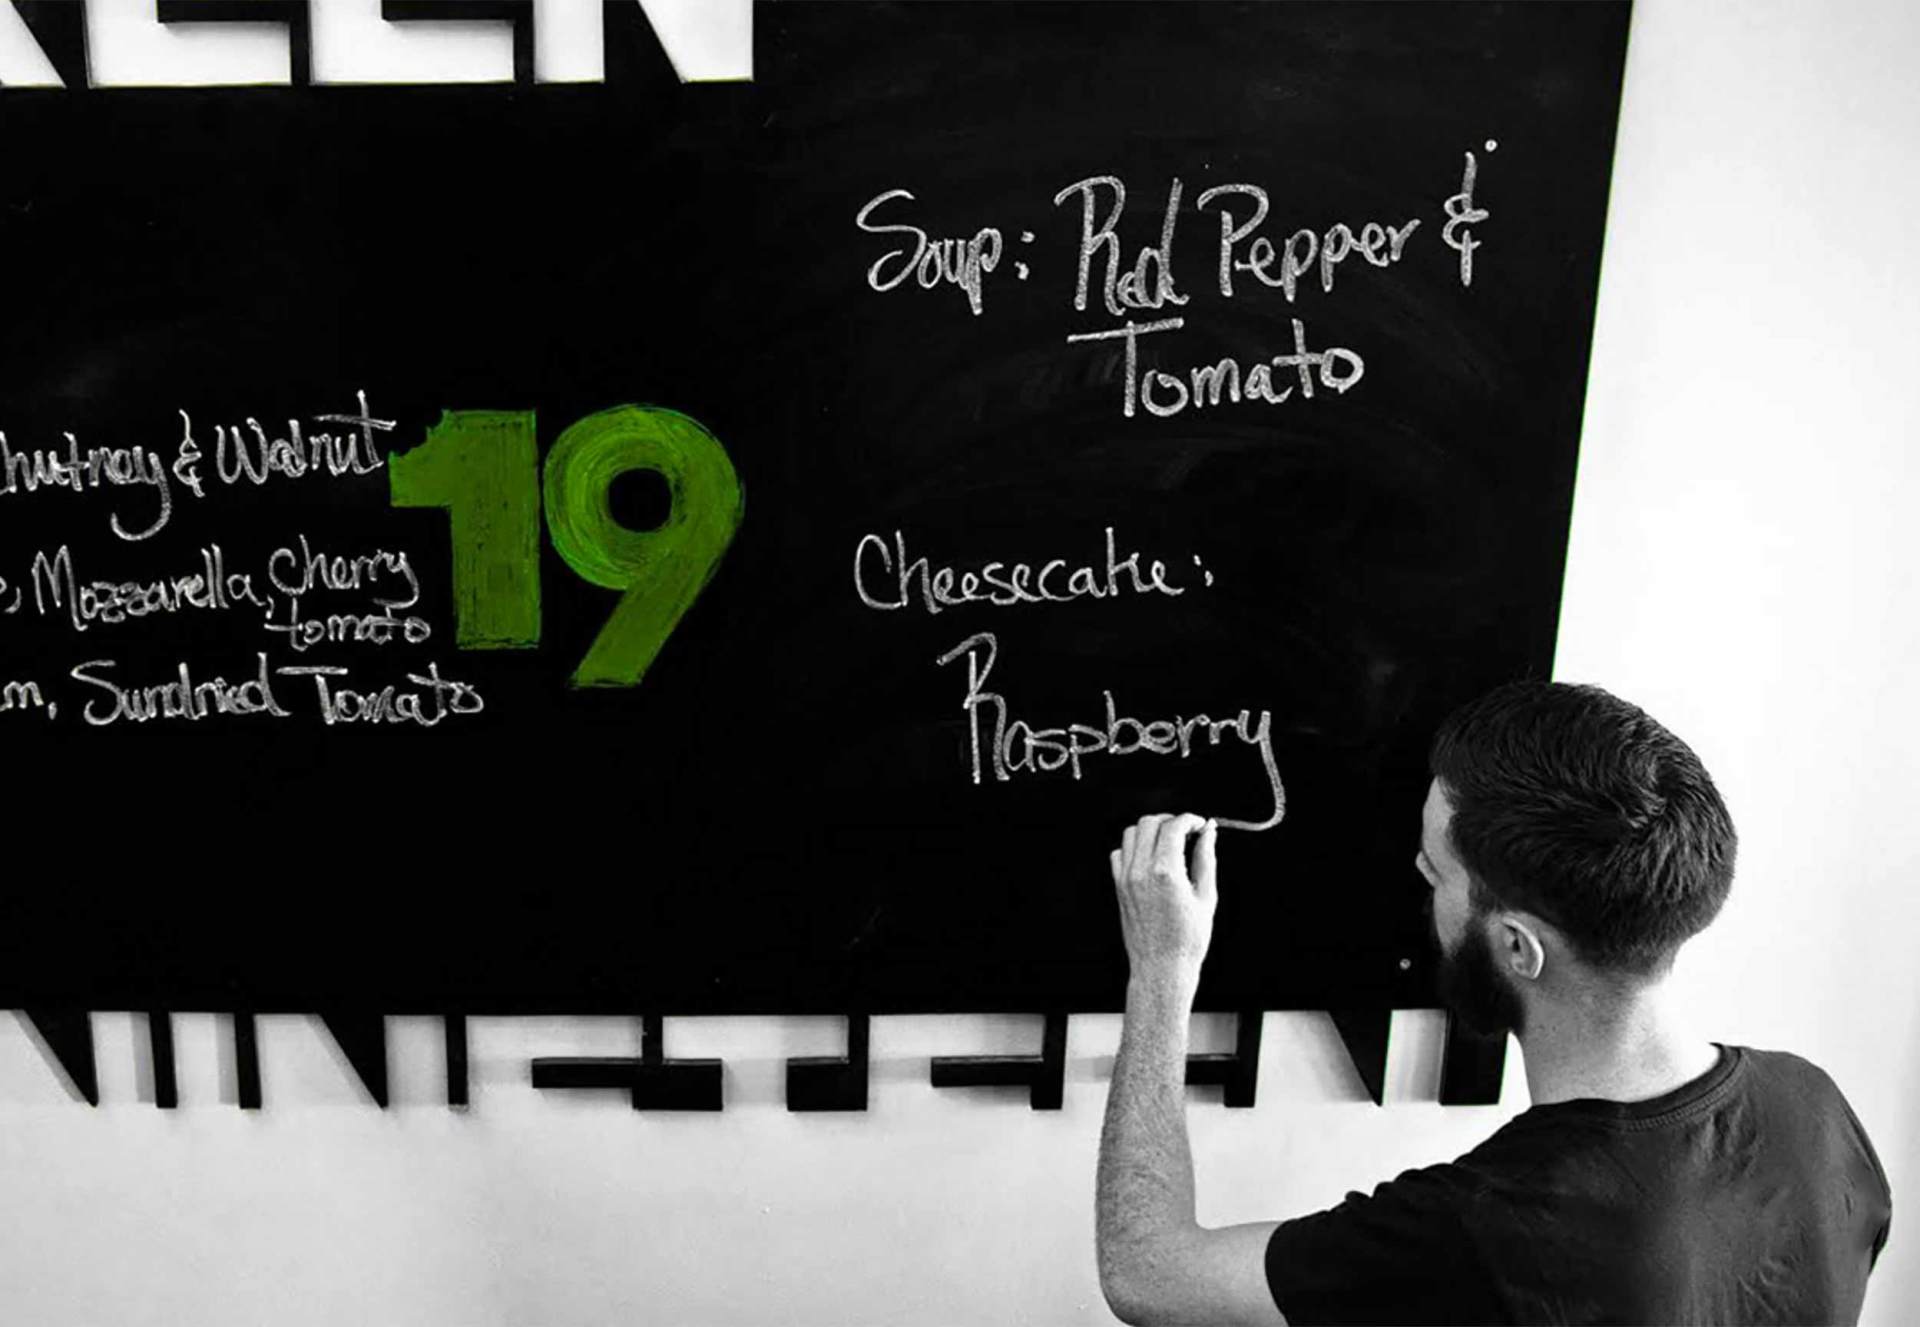 Soup: Red Pepper &
Tomato
& Walnut
Mozzarella, Cherry
tomato
Sundried Tomato
19
Cheesecake:
Raspberry
NINETEEN